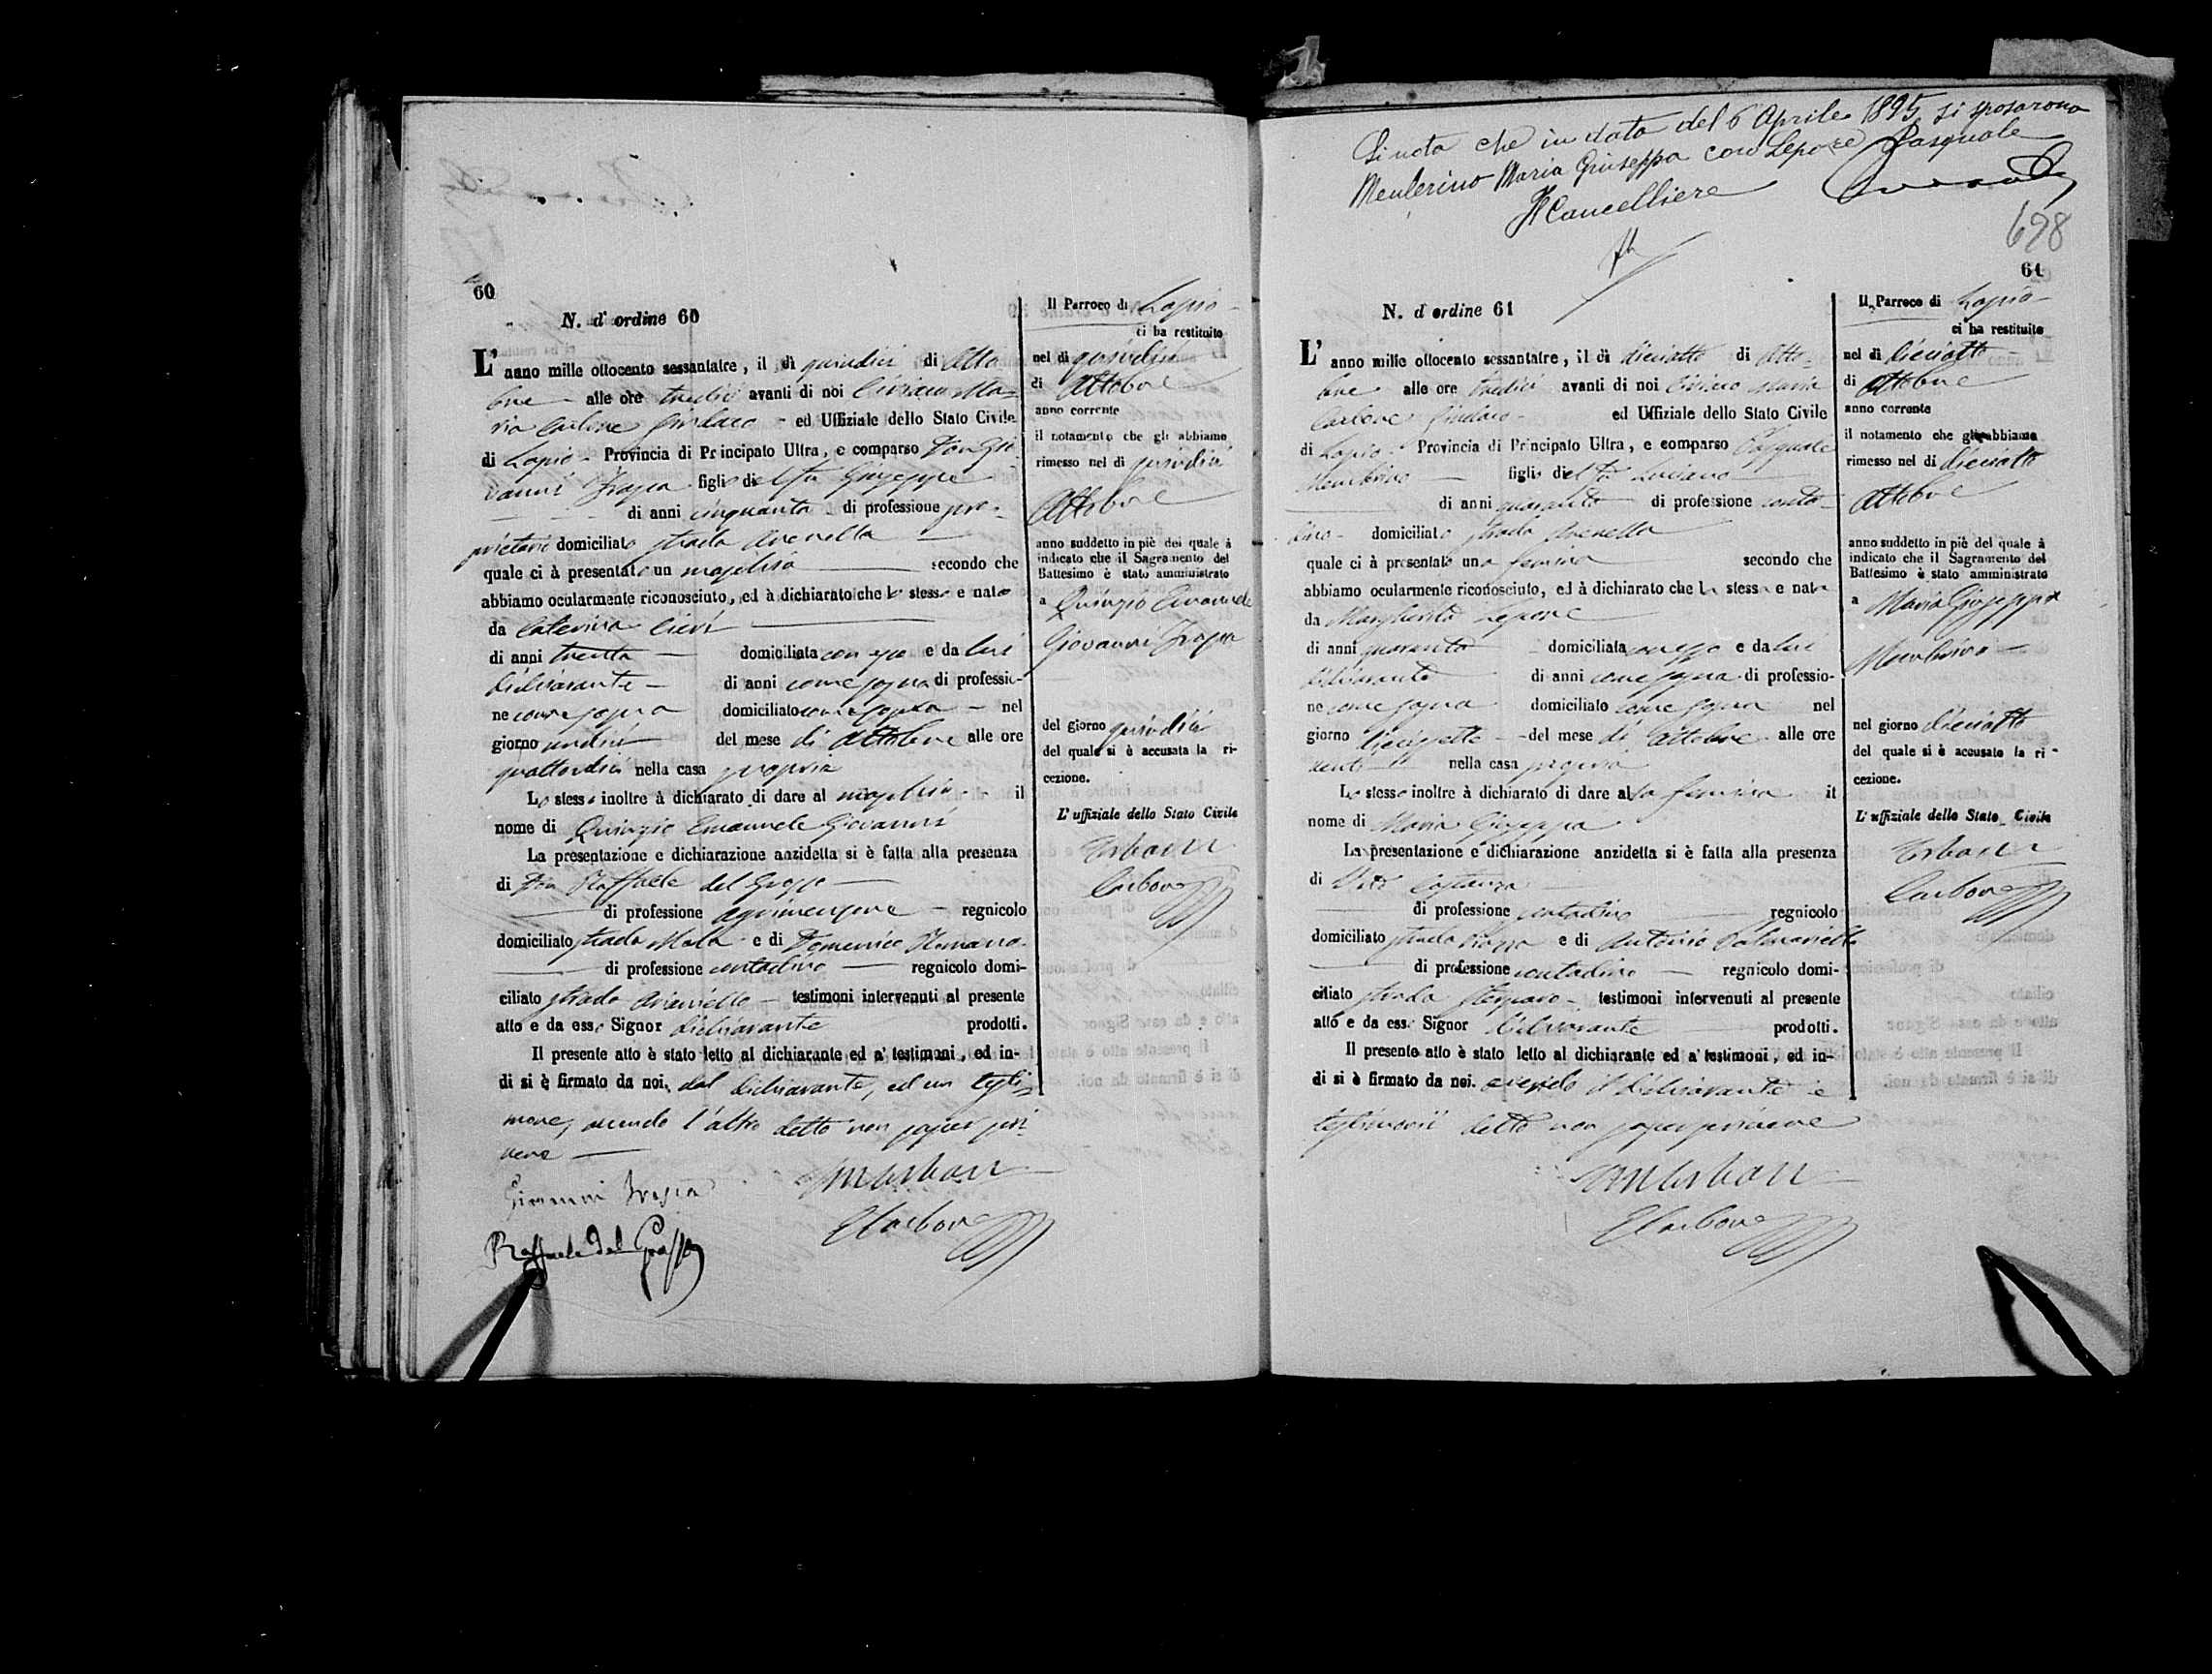 60
N. d' ordine 60
L' anno mille ottocento sessantatre, il dì quindici di Otto
bre alle ore tredici avanti di noi Ciriaco Ma=
ria Carbone Sindaco ed Uffiziale dello Stato Civile
di Lapio Provincia di Principato Ultra, è comparso Don Gio=
vanni figlio del fu Giuseppe
di anni cinquanta di professione pro=
prietario domiciliato strada Arenella
quale ci à presentato un maschio secondo che
abbiamo ocularmente riconosciuto, ed à dichiarato che lo stesso e nato
da Caterina
di anni trenta domiciliata con esso e da lui
dichiarante di anni come sopra di professio-
ne come sopra domiciliato come sopra nel
giorno undici del mese di Ottobre alle ore
quattordici nella casa propria
Lo stesso inoltre à dichiarato di dare al maschio il
nome di Quinzio Emanuele Giovanni
La presentazione e dichiarazione anzidetta si è fatta alla presenza
di Don Raffaele del Grosso
di professione agrimensore regnicolo
domiciliato strada Mola e di Domenico Romano
di professione contadino regnicolo domi-
ciliato strada testimoni intervenuti al presente
atto e da esso Signor dichiarante prodotti.
Il presente atto è stato letto al dichiarante ed a' testimoni, ed in-
di si è firmato da noi, dal dichiarante, ed un testi=
mone, avendo l'altro detto non saper scri=
vere
Raffaele del Grosso
Carbone
Il Parroco di Lapio
ci ha restituito
nel dì quindici
di Ottobre
anno corrente
il notamento che gli abbiamo
rimesso nel dì quindici
Ottobre
anno suddetto in piè del quale à
indicato che il Sagramento del
Battesimo è stato amministrato
a Quinzio Emanuele
Giovanni
del giorno quindici
del quale si è accusata la ri-
cezione.
L' uffiziale dello Stato Civile
Carbone
Si nota che in data del 6 Aprile 1895 si sposarono
Menferino Maria Giuseppa con Lepore Pasquale
Il Cancelliere
698
61
N. d' ordine 61
L' anno mille ottocento sessantatre, il dì diciotto di Otto=
bre alle ore tredici avanti di noi Ciriaco Maria
Carbone Sindaco ed Uffiziale dello Stato Civile
di Lapio Provincia di Principato Ultra, e comparso Pasquale
figlio del fu Luciano
di anni quaranta di professione conta=
dino domiciliato strada Arenella
quale ci à presentato una femina secondo che
abbiamo ocularmente riconosciuto, ed à dichiarato che la stessa e nata
da Margherita Lepore
di anni quaranta domiciliata con esso e da lui
dichiarante di anni come sopra di professio-
ne come sopra domiciliato come sopra nel
giorno diciassette del mese di Ottobre alle ore
venti nella casa propria
Lo stesso inoltre à dichiarato di dare alla femina il
nome di Maria Giuseppa
La presentazione e dichiarazione anzidetta si è fatta alla presenza
di Vito Costanza
di professione contadino regnicolo
domiciliato strada Piazza e di Antonio Palmariello
di professione contadino regnicolo domi-
ciliato strada testimoni intervenuti al presente
atto e da esso Signor dichiarante prodotti.
Il presente atto è stato letto al dichiarante ed a' testimoni, ed in-
di si è firmato da noi, avendo il dichiarante e
testimonii detto non saper scrivere
Carbone
Il Parroco di Lapio
ci ha restituito
nel dì diciotto
di Ottobre
anno corrente
il notamento che gli abbiamo
rimesso nel dì diciotto
Ottobre
anno suddetto in piè del quale à
indicato che il Sagramento del
Battesimo è stato amministrato
a Maria Giuseppa
nel giorno diciotto
del quale si è accusato la ri-
cezione.
L' uffiziale dello Stato Civile
Carbone